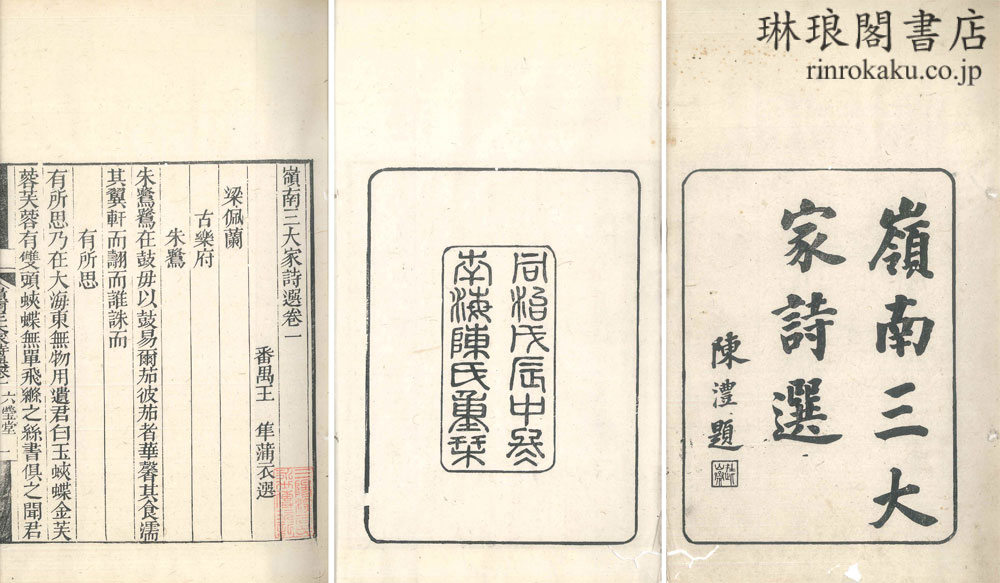 琳琅閣書店
rinrokaku.co.jp
嶺南三大
家詩選
陳澧題
同治戊辰中冬
南海陳氏重栞
嶺南三大家詩選卷一
番禺王 隼蒲衣選
梁佩蘭
古樂府
朱鷺
朱鷺鷺在鼓毋以鼓易爾茄彼茄者華馨其食濡
其翼軒而翮而誰誅而
有所思
有所思乃在大海東無物用遺君白玉蛺蝶金芙
蓉芙蓉有雙頭蛺蝶無單飛繅之絲書俱之聞君
六瑩堂 一